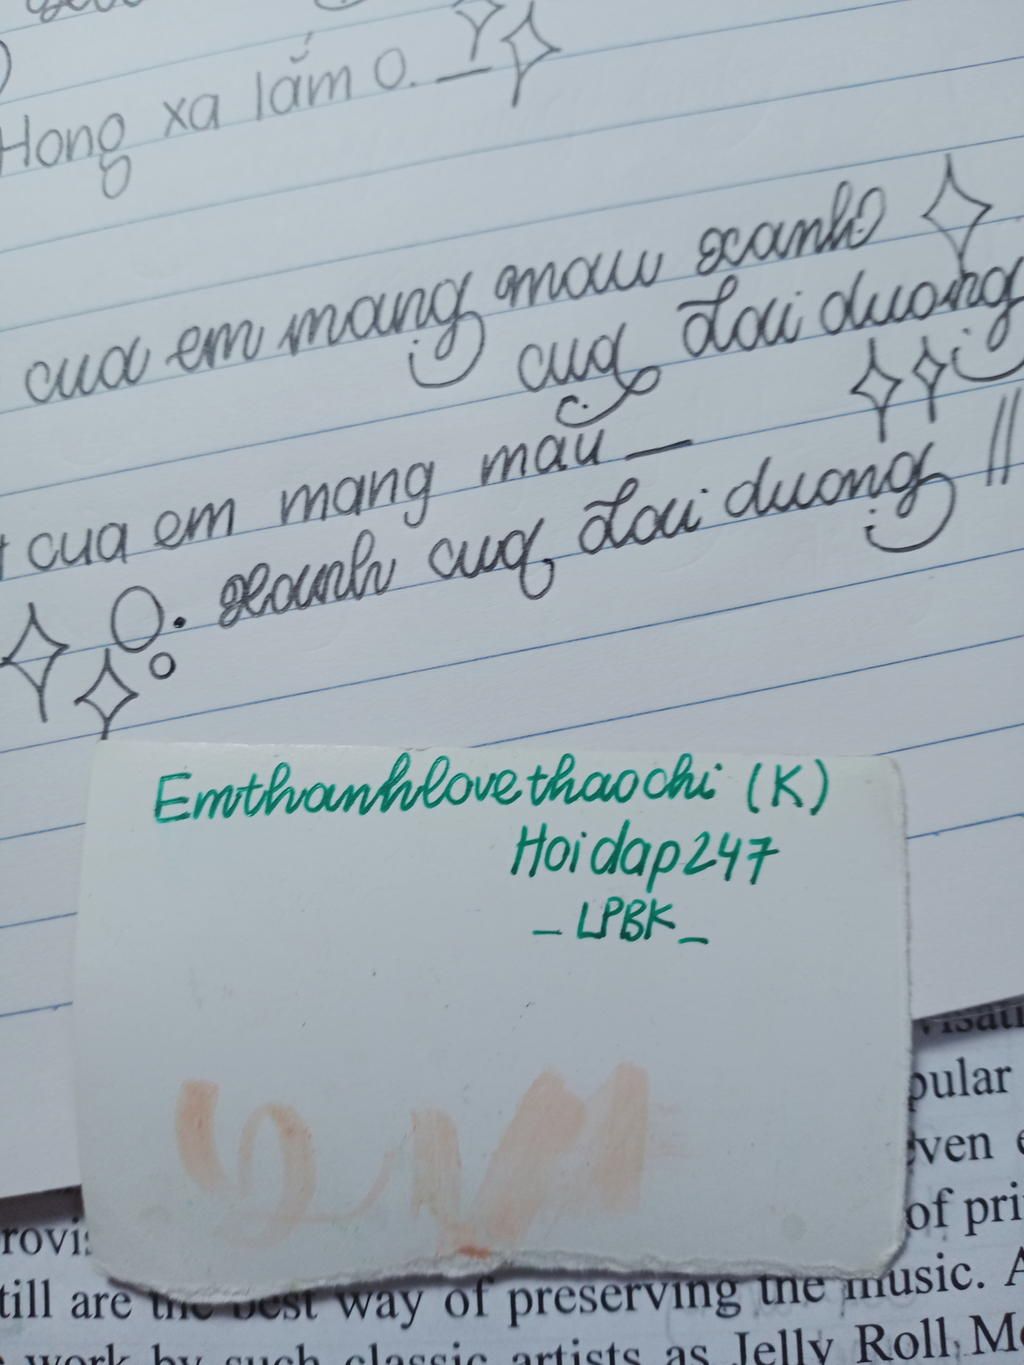 Hong xa lắm o.
cua em mang mau xanh
cuq đai duong
cua em mang mau
xanh cuq đai duong
Emthanhlovethaochi (K)
Hoidap247
_LPBK_
pular
ven
of pri
till are the best way of preserving the music. A
work by such classic artists as Jelly Roll Mo